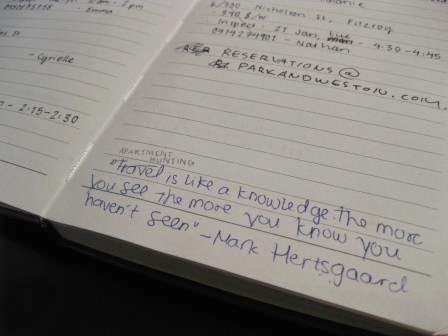 - Emma
- Cynelle
- 2:15-2:30
Nicholson St, Fitzroy
Inspect: 21 Jan, 4:30-4:45
- Nathan
RESERVATIONS @
PARKANDWESTON.COM.
APARTMENT
HUNTING
"Travel is like a knowledge the more
you see the more you know you
haven't seen" -Mark Hertsgaard